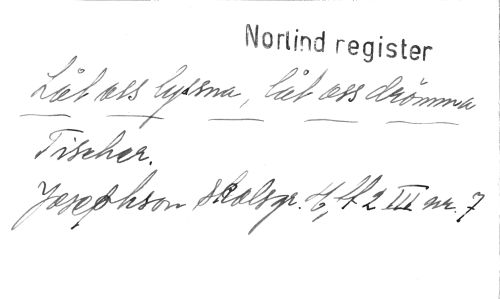 Norlind register
Låt oss lyssna, låt oss drömma
Tischer.
Josephson Skolsgr. H, 2 III nr. 7